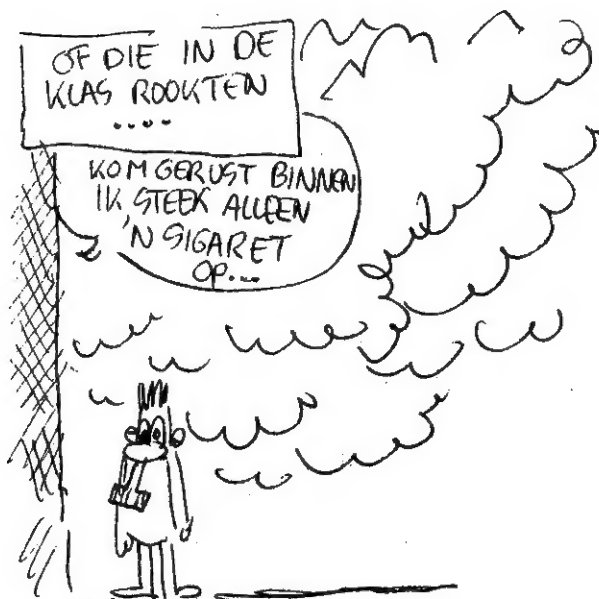 OF DIE IN DE
KLAS ROOKTEN
....
KOM GERUST BINNEN
IK STEEK ALLEEN
'N SIGARET
OP...